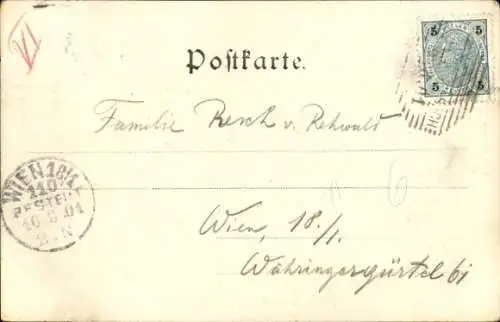 VI
5 5
Postkarte.
5 5
Familie Resch v. Rehwald
WIEN 18/1
110
BESTELLT
16 8 01
2-N
6
Wien, 18./1.
Währingergürtel 61